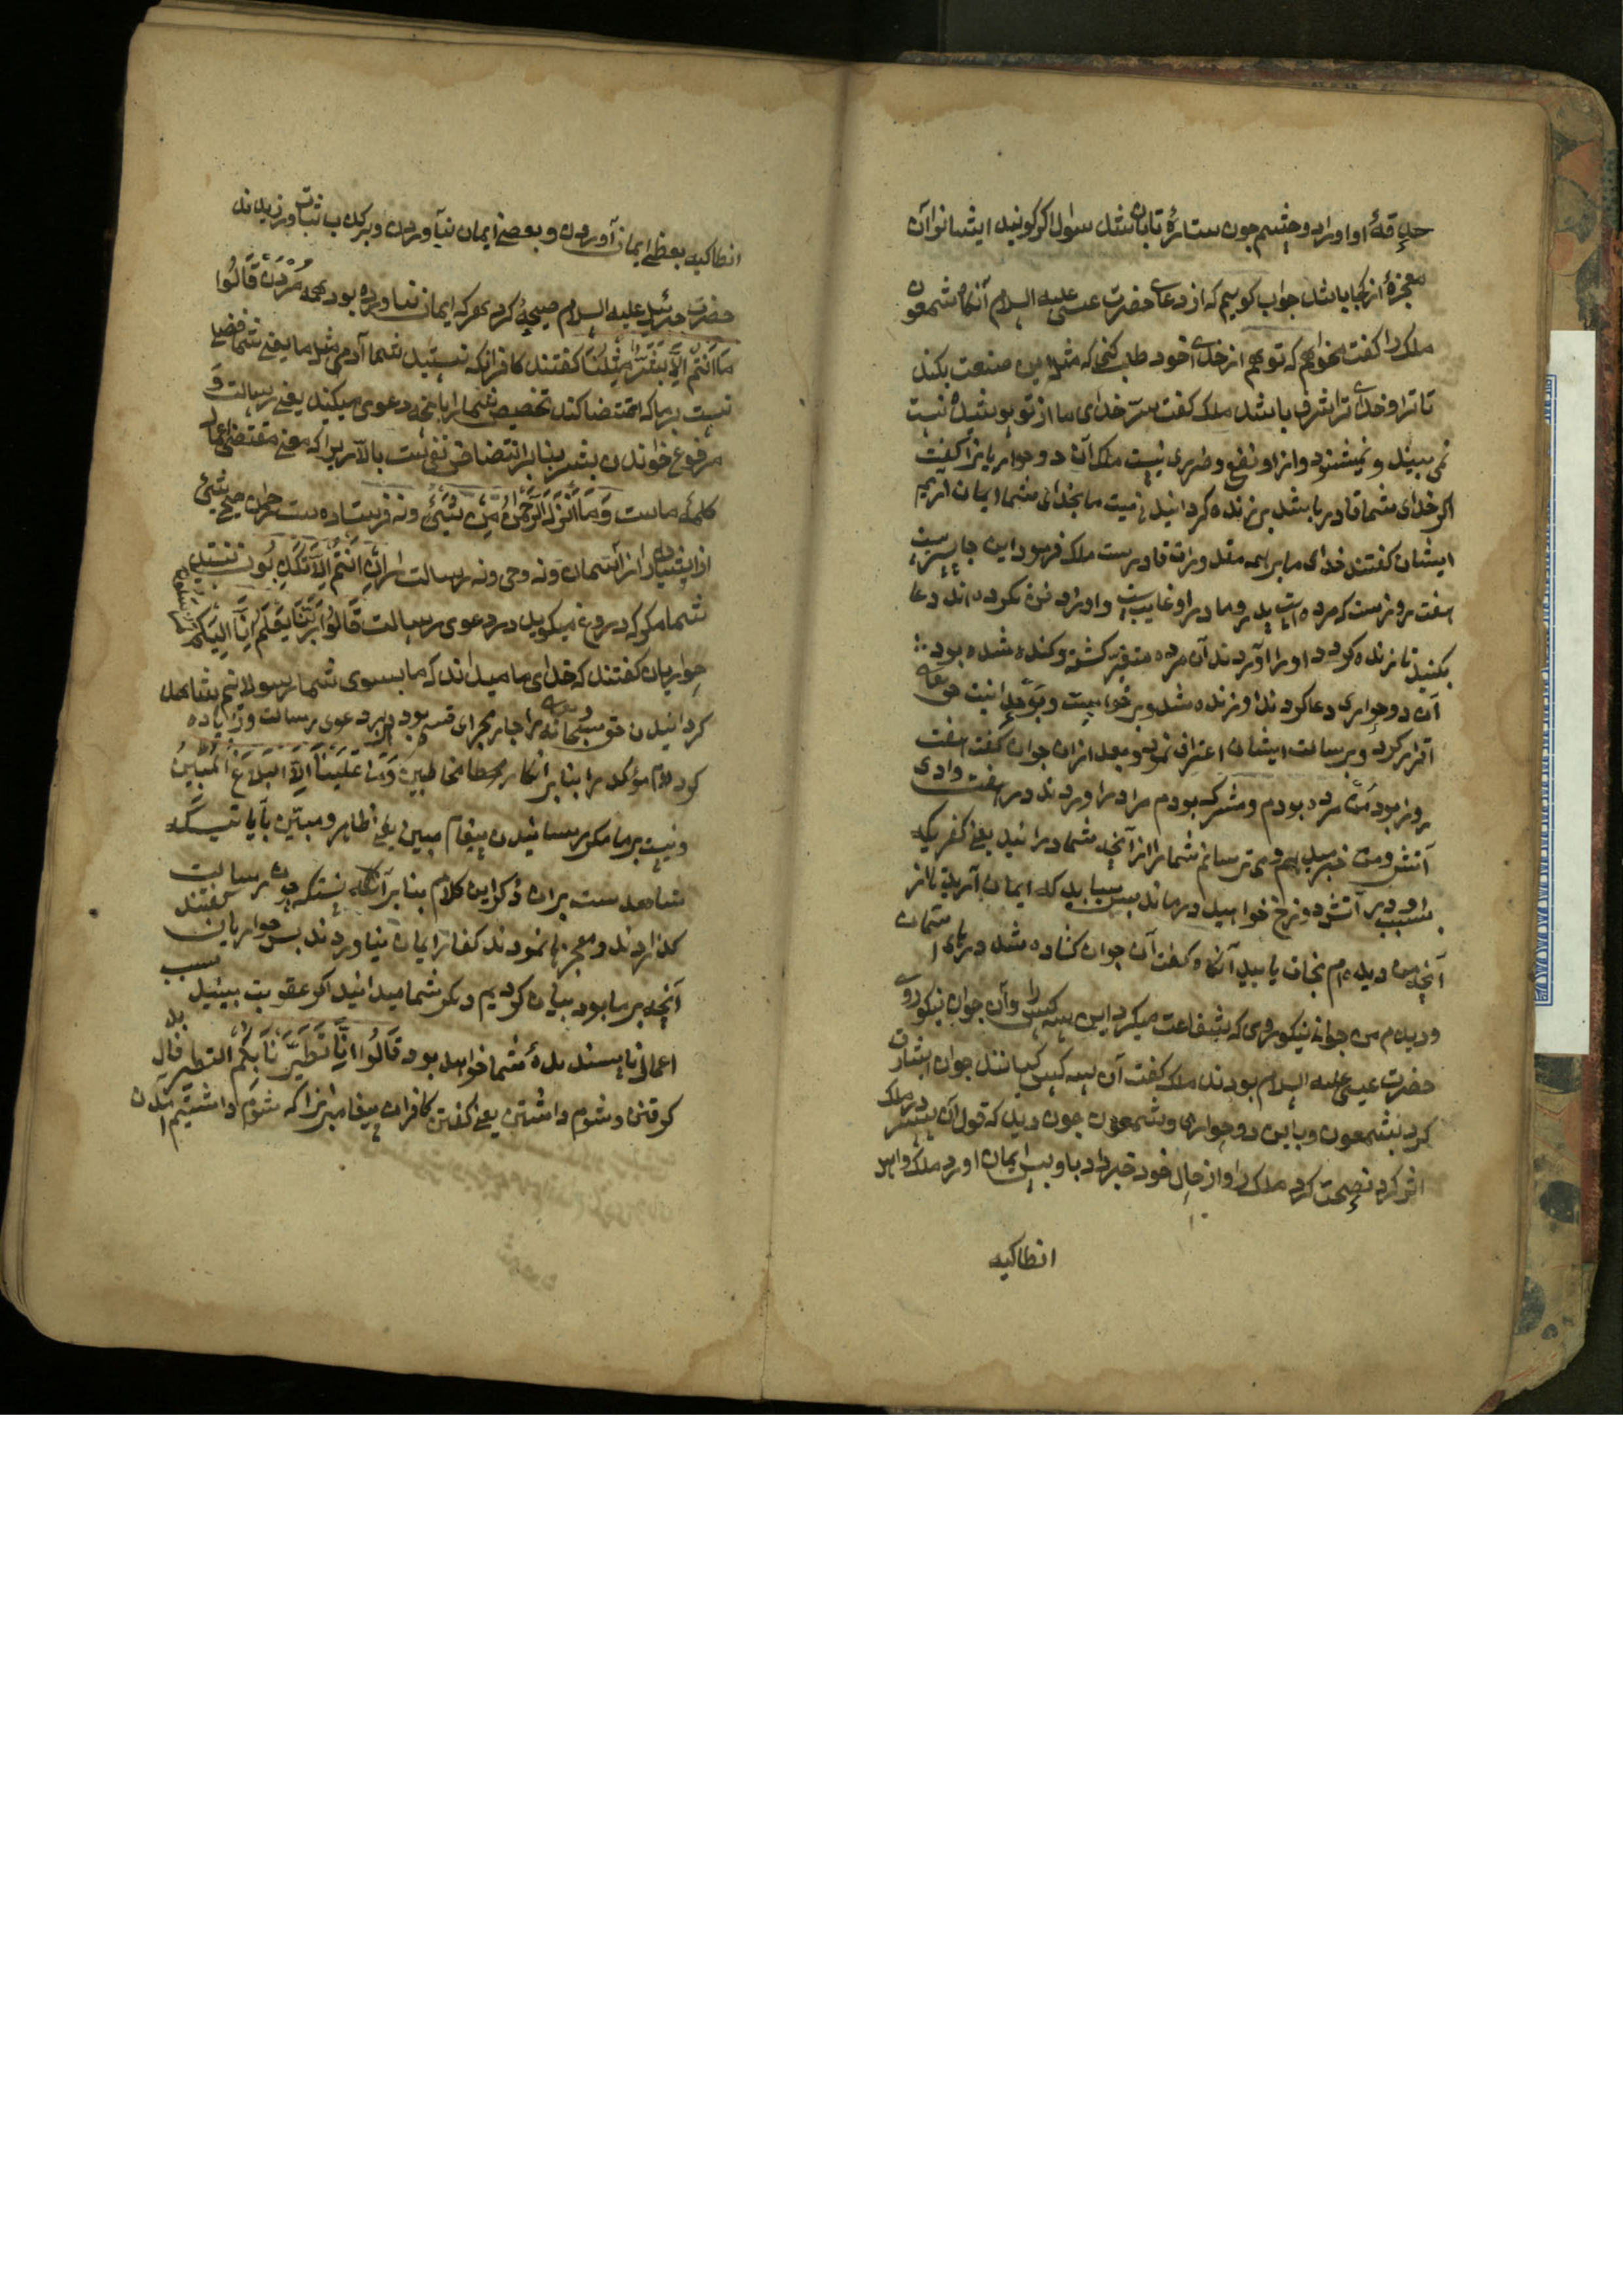 حدقهٔ او او را دو چشم چون ستارهٔ تابان شد سؤال اگر گویند ایشانرا آن
معجزهٔ از کجا باشد جواب گویم که از دعای حضرت عیسی علیه السلام آنگاه شمعون
ملک را گفت میخواهم که تو هم از خدای خود طلب کنی که مثل این صنعت بکند
تا ترا و خدای ترا شرف باشد ملک گفت سرّ خدای ما از تو پوشیده نیست
نمی بیند و نمیشنود و ازو نفع و ضرری نیست ملک آن دو حواریانرا گفت
اگر خدای شما قادر باشد بر زنده کردانیدن میت ما بخدای شما ایمان آریم
ایشان گفتند خدای ما بر همه مقدورات قادرست ملک فرمود این جا پسریست
هفت روزست که مرده است پدر و مادر او غایب است و او را دفن نکرده اند دعا
بکنید تا زنده کردد او را آوردند آن مرده متغیر کشته و کنده شده بود
آن دو حواری دعا کردند او زنده شد و برخواست و بوحدانیت حق تعالی
اقرار کرد و برسالت ایشان اعتراف نمود و بعد ازان جوان گفت هفت
روز بود من مرده بودم و مشرک بودم مرا در آوردند در هفت وادی
آتش و من خبر میدهم و می ترسانم شما را از آنچه شما درانید یعنی کفر یکه
بسبب او در آتش دوزخ خواهید درماند پس بباید که ایمان آرید تا از
آنچه من دیده ام نجات یابید آنگاه گفت آن جوان کشاده شد درهای آسمان
و دیدم من جوانی نیکوروی که شفاعت میکرد این سه کس را و آن جوان نیکوروی
حضرت عیسی علیه السلام بودند ملک گفت آن سه کس کیانند جوان اشارت
کرد بشمعون و باین دو حواری و شمعون چون دید که قول آن پسر در ملک
اثر کرد نصیحت کرد ملک را و از حال خود خبر داد باو پس ایمان آورد ملک و اهل
انطاکیه
انطاکیه بعضی ایمان آوردن و بعضی ایمان نیاوردن و بر کذب ثبات ورزیدند
حضرت جبرئیل علیه السلام صیحهٔ کرد هر که ایمان نیاورده بود همه مردن قَالُوا
مَا أَنْتُمْ إِلَّا بَشَرٌ مِثْلُنَا گفتند کافرانکه نیستید شما آدمی مثل ما یعنی شما فضلی
نیست بر ما که اقتضا کند تخصیص شما را بآنچه دعوی میکنید یعنی رسالت و
مرفوع خواندن بشر بنا بر انتقاض نفی است بالّا زیرا که معنی مقتضی اعمال
کلمهٔ ماست وَمَا أَنْزَلَ الرَّحْمَنُ مِنْ شَيْءٍ و نه فرستاده ست رحمن هیچ شیئ
از آسمان و نه وحی و نه رسالت إِنْ أَنْتُمْ إِلَّا تَكْذِبُونَ نیستید
شما مکر که دروغ میکویید در دعوی رسالت قَالُوا رَبُّنَا يَعْلَمُ إِنَّا إِلَيْكُمْ لَمُرْسَلُونَ
حواریان گفتند که خدای ما میداند که ما بسوی شما رسولانیم شاهد
کردانیدن حق سبحانه را جاری مجرای قسم بود در دعوی رسالت و زیاده
کرد لام مؤکد را بنا بر انکار مخاطبین وَمَا عَلَيْنَا إِلَّا الْبَلَاغُ الْمُبِينُ
و نیست بر ما مکر رسانیدن پیغام مبین یعنی ظاهر و مبیّن بآیاتیکه
شاهدست بران ذکر این کلام بنا بر آنکه چون رسالت
کذاردند و معجزها نمودند کفار ایمان نیاوردند پس حواریان گفتند
آنچه بر ما بود بیان کردیم دیکر شما میدانید اکر عقوبت بینید بسبب
اعمال ناپسندیدهٔ شما خواهد بود قَالُوا إِنَّا تَطَيَّرْنَا بِكُمْ التطیر فال بد
کرفتن و شوم داشتن یعنی گفتن کافران پیغامبرانرا که شوم داشتیم آمدن